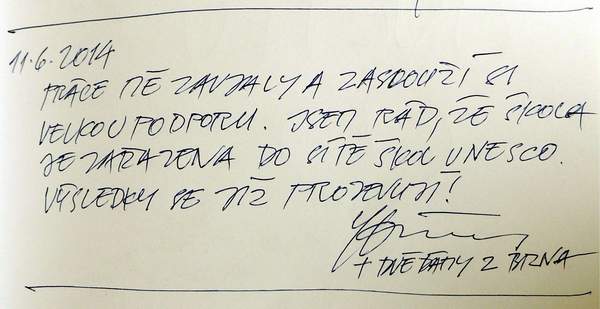 11.6.2014
PRÁCE MĚ ZAUJALY A ZASLOUŽÍ SI
VELKOU PODPORU. JSEM RÁD, ŽE ŠKOLA
JE ZAŘAZENA DO SÍTĚ ŠKOL UNESCO.
VÝSLEDKY SE JIŽ PROJEVUJÍ!
+ DVĚ DÁMY Z BRNA